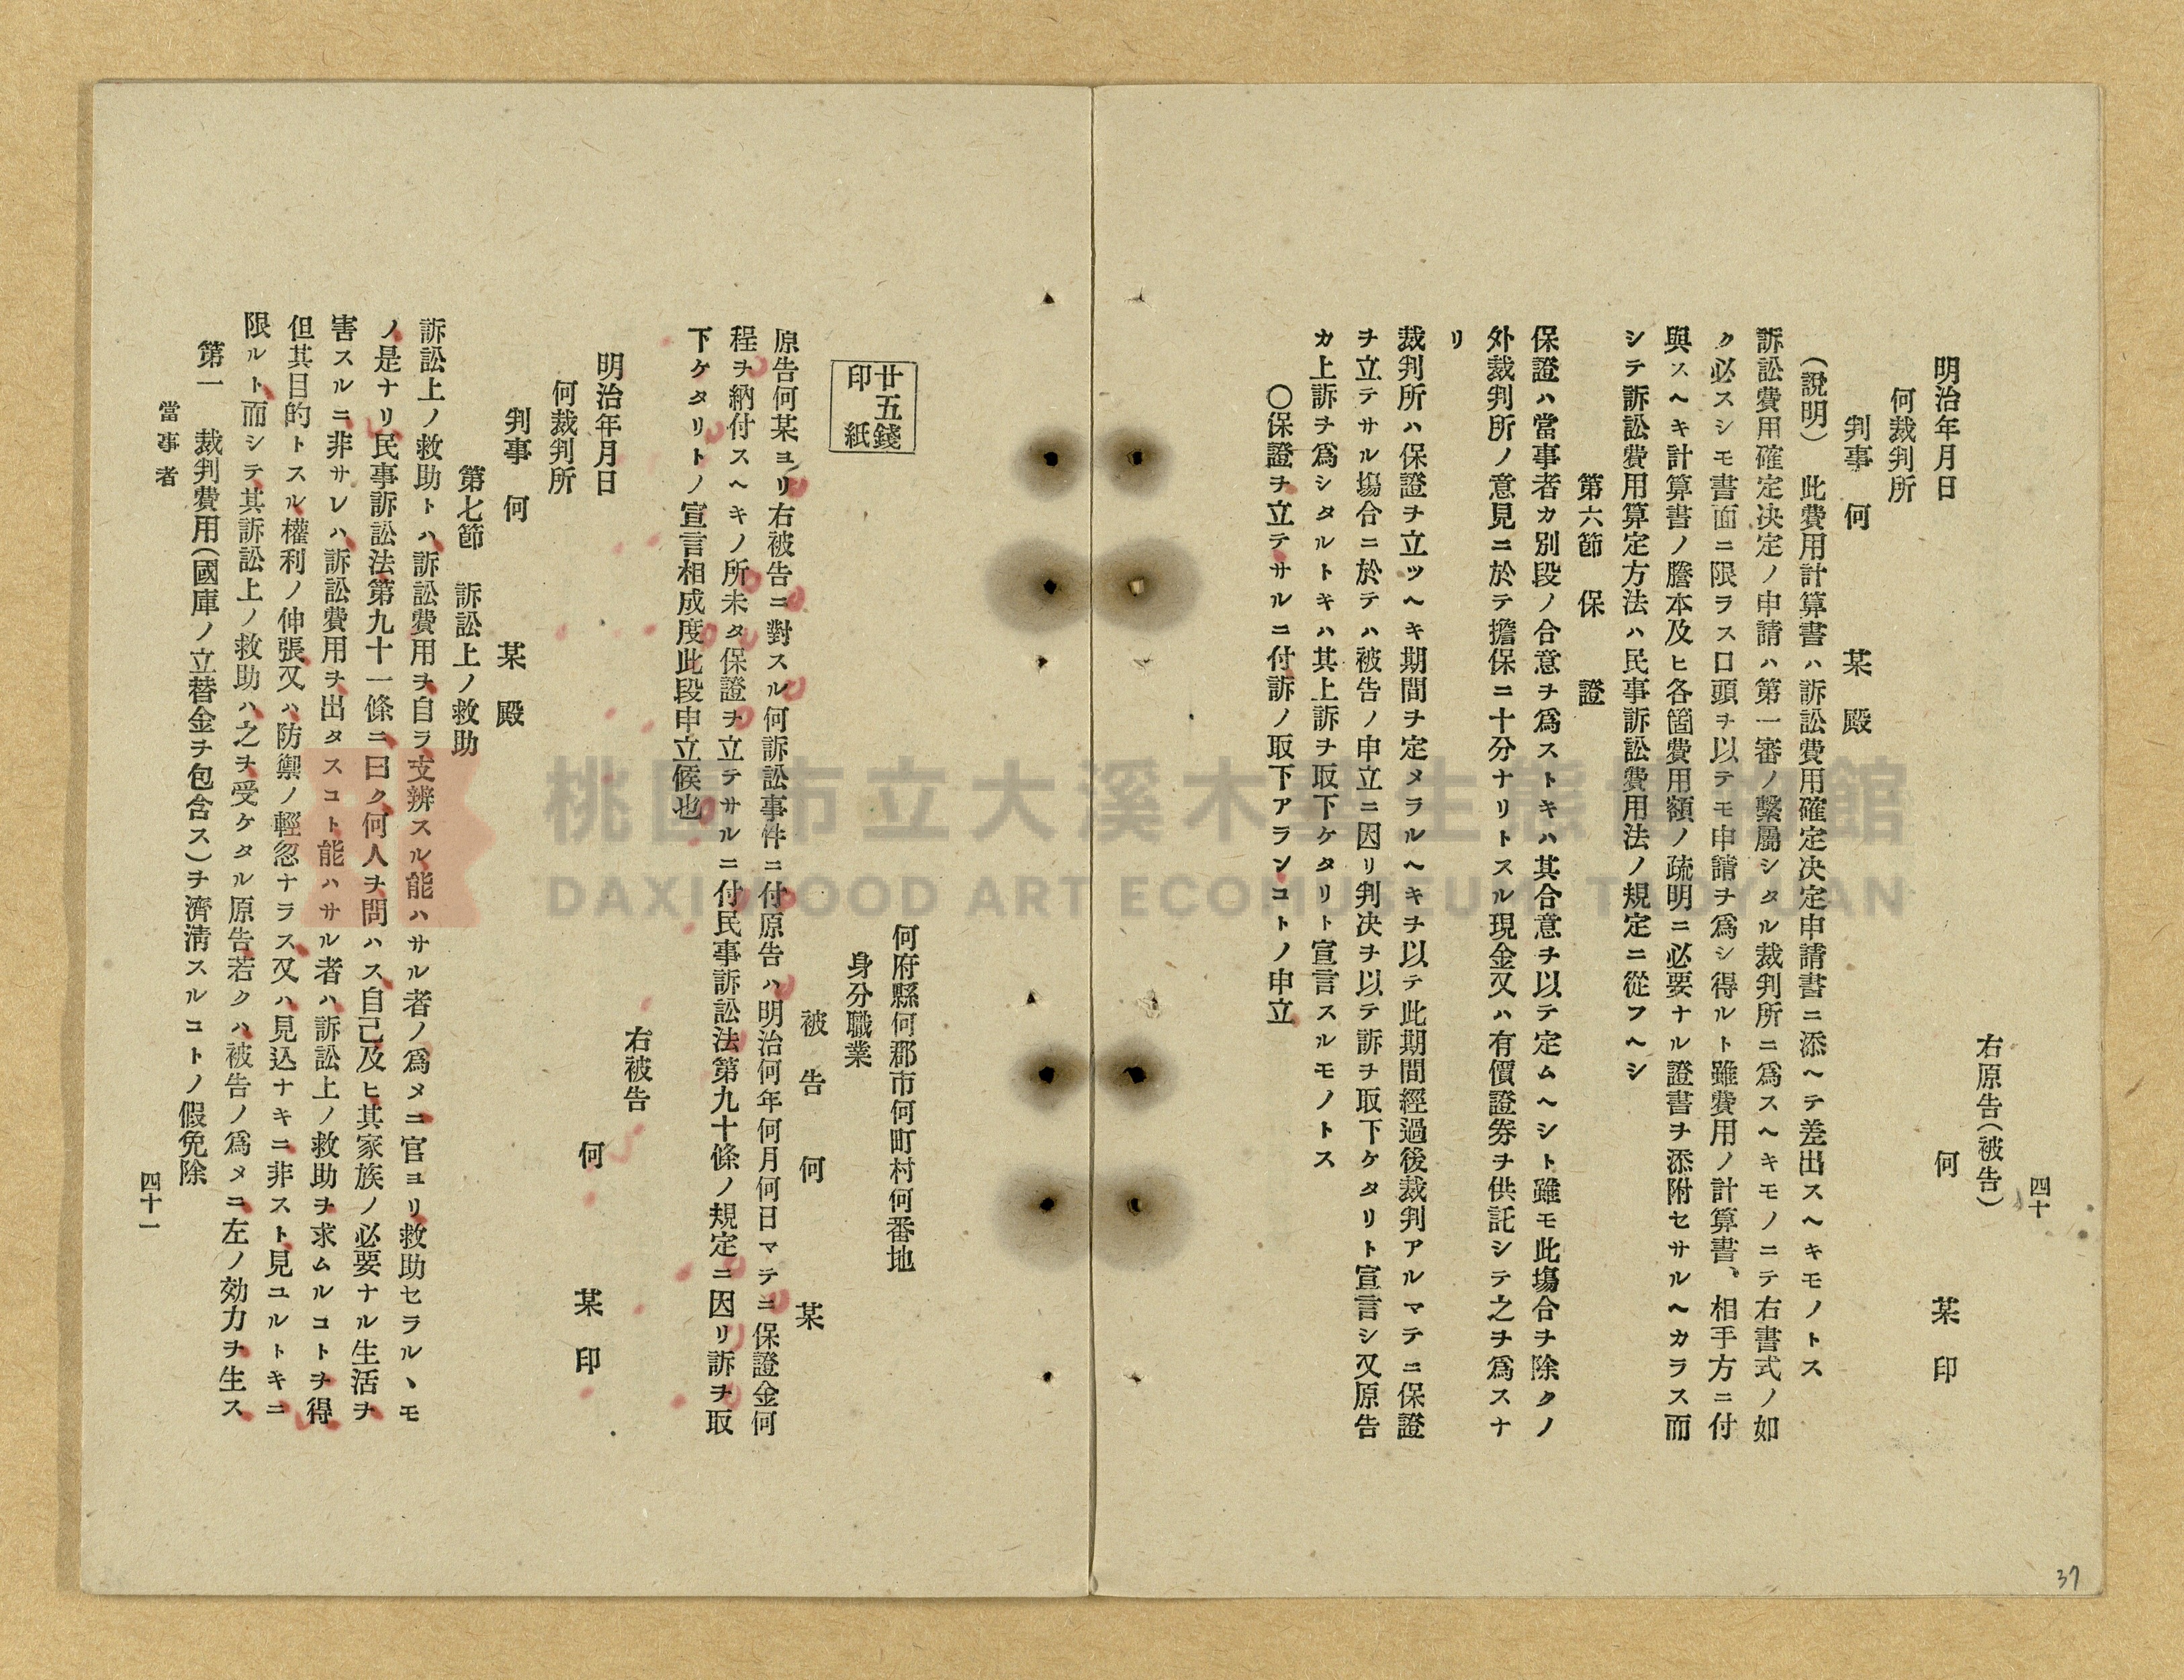 四十
右原告(被告)
何 某 印
明治年月日
何裁判所
判事 何 某 殿
(說明) 此費用計算書ハ訴訟費用確定决定申請書ニ添ヘテ差出スヘキモノトス
訴訟費用確定决定ノ申請ハ第一審ノ繫屬シタル裁判所ニ爲スヘキモノニテ右書式ノ如
ク必スシモ書面ニ限ラス口頭ヲ以テモ申請ヲ爲シ得ルト雖費用ノ計算書、相手方ニ付
與スヘキ計算書ノ謄本及ヒ各箇費用額ノ疏明ニ必要ナル證書ヲ添附セサルヘカラス而
シテ訴訟費用算定方法ハ民事訴訟費用法ノ規定ニ從フヘシ
第六節 保 證
保證ハ當事者カ別段ノ合意ヲ爲ストキハ其合意ヲ以テ定ムヘシト雖モ此塲合ヲ除クノ
外裁判所ノ意見ニ於テ擔保ニ十分ナリトスル現金又ハ有價證券ヲ供託シテ之ヲ爲スナ
リ
裁判所ハ保證ヲ立ツヘキ期間ヲ定メラルヘキヲ以テ此期間經過後裁判アルマテニ保證
ヲ立テサル塲合ニ於テハ被告ノ申立ニ因リ判决ヲ以テ訴ヲ取下ケタリト宣言シ又原告
カ上訴ヲ爲シタルトキハ其上訴ヲ取下ケタリト宣言スルモノトス
○保證ヲ立テサルニ付訴ノ取下アランコトノ申立
廿五錢
印紙
何府縣何郡市何町村何番地
身分職業
被 告 何 某
原告何某ヨリ右被告ニ對スル何訴訟事件ニ付原告ハ明治何年何月何日マテニ保證金何
程ヲ納付スヘキノ所未タ保證ヲ立テサルニ付民事訴訟法第九十條ノ規定ニ因リ訴ヲ取
下ケタリトノ宣言相成度此段申立候也
右被告
何 某 印
明治年月日
何裁判所
判事 何 某 殿
第七節 訴訟上ノ救助
訴訟上ノ救助トハ訴訟費用ヲ自ラ支辨スル能ハサル者ノ爲メニ官ヨリ救助セラルヽモ
ノ是ナリ民事訴訟法第九十一條ニ曰ク何人ヲ問ハス自己及ヒ其家族ノ必要ナル生活ヲ
害スルニ非サレハ訴訟費用ヲ出タスコト能ハサル者ハ訴訟上ノ救助ヲ求ムルコトヲ得
但其目的トスル權利ノ伸張又ハ防禦ノ輕忽ナラス又ハ見込ナキニ非スト見ユルトキニ
限ルト而シテ其訴訟上ノ救助ハ之ヲ受ケタル原告若クハ被告ノ爲メニ左ノ効力ヲ生ス
第一 裁判費用(國庫ノ立替金ヲ包含ス)ヲ濟淸スルコトノ假免除
當事者
四十一
37
桃園市立大溪木藝生態博物館
DAXI WOOD ART ECOMUSEUM, TAOYUAN